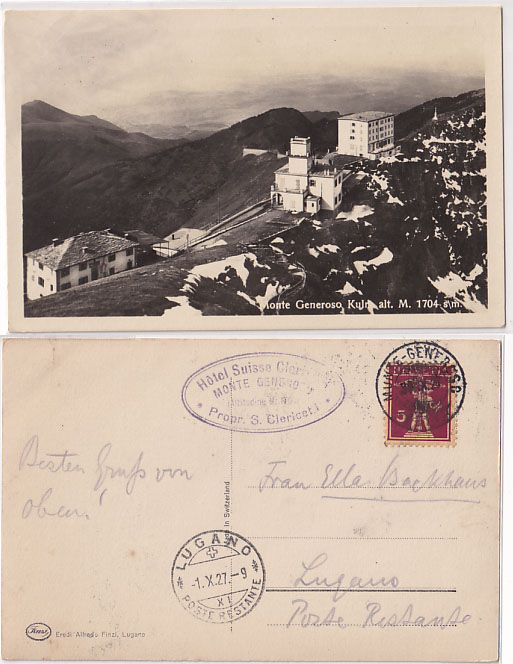 Monte Generoso Kulm alt. M. 1704 s/m.
Hôtel Suisse Clerici
MONTE GENEROSO
Propr. S. Clericetti
MONTE-GENEROSO
5
Besten Gruß von
oben!
Frau Ella Backhaus
Made in Switzerland
LUGANO
-1.X.27.-9
XI
POSTE RESTANTE
Lugano
Poste Restante
Finzi
Eredi Alfredo Finzi, Lugano